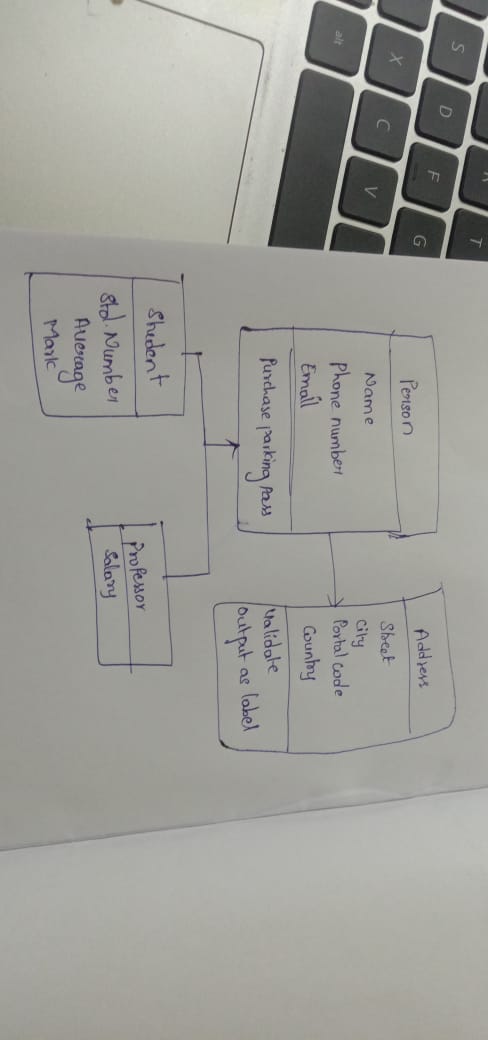 Person
Name
Phone number
Email
Purchase parking Pass
Address
Street
City
Portal code
Country
Validate
output as label
Student
Std. Number
Average
Mark
Professor
Salary
S
D
F
G
T
X
C
V
alt